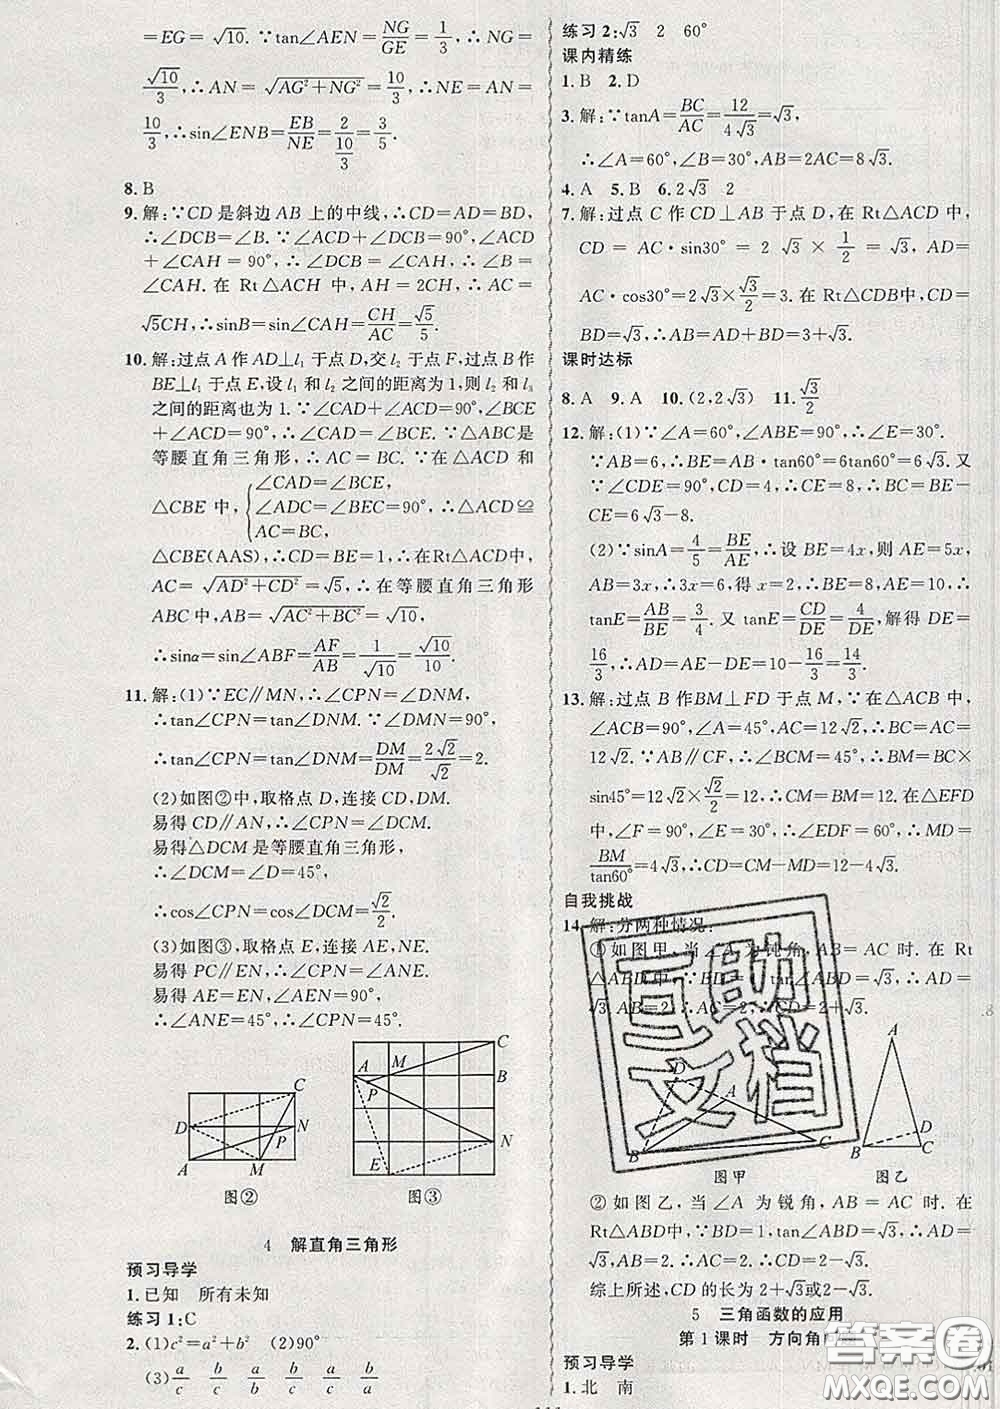 =EG=√10.∵tan∠AEN=NG/GE=1/3,∴NG=
√10/3,∴AG=√(AG²+NG²)=10/3,∴NE=AN=
10/3,∴sin∠ENB=EB/NE=2/(10/3)=3/5.
8.B
9.解:∵CD是斜边AB上的中线,∴CD=AD=BD,
∴∠DCB=∠B.∵∠ACD+∠DCB=90°,∠ACD
+∠CAH=90°,∴∠DCB=∠CAH,∴∠B=
∠CAH.在Rt△ACH中,AH=2CH,∴AC=
√5CH,∴sinB=sin∠CAH=CH/AC=√5/5.
10.解:过点A作AD⊥l₁于点D,交l₂于点F,过点B作
BE⊥l₁于点E,设l₁和l₂之间的距离为1,则l₂和l₃
之间的距离也为1.∵∠CAD+∠ACD=90°,∠BCE
+∠ACD=90°,∴∠CAD=∠BCE.∵△ABC是
等腰直角三角形,∴AC=BC.∵在△ACD和
∠CAD=∠BCE,
△CBE中,{∠ADC=∠BEC=90°,∴△ACD≌
AC=BC,
△CBE(AAS),∴CD=BE=1,∴在Rt△ACD中,
AC=√(AD²+CD²)=√5,∴在等腰直角三角形
ABC中,AB=√(AC²+BC²)=√10,
∴sinα=sin∠ABF=AF/AB=1/√10=√10/10.
11.解:(1)∵EC∥MN,∴∠CPN=∠DNM,
∴tan∠CPN=tan∠DNM.∵∠DMN=90°,
∴tan∠CPN=tan∠DNM=DM/DM=2√2/√2=2.
(2)如图②中,取格点D,连接CD,DM.
易得CD∥AN,∴∠CPN=∠DCM.
易得△DCM是等腰直角三角形,
∴∠DCM=∠D=45°,
∴cos∠CPN=cos∠DCM=√2/2.
(3)如图③,取格点E,连接AE,NE.
易得PC∥EN,∴∠CPN=∠ANE.
易得AE=EN,∠AEN=90°,
∴∠ANE=45°,∴∠CPN=45°.
C
D N
P
A M
图②
C
A M B
P
N
E
图③
4 解直角三角形
预习导学
1.已知 所有未知
练习1:C
2.(1)c²=a²+b² (2)90°
(3)a/c b/c a/b b/c a/c b/a
练习2:√3 2 60°
课内精练
1.B 2.D
3.解:∵tanA=BC/AC=12/4√3=√3,
∴∠A=60°,∠B=30°,AB=2AC=8√3.
4.A 5.B 6.2√3 2
7.解:过点C作CD⊥AB于点D,在Rt△ACD中,
CD=AC·sin30°=2√3×1/2=√3,AD=
AC·cos30°=2√3×√3/2=3.在Rt△CDB中,CD=
BD=√3,∴AB=AD+BD=3+√3.
课时达标
8.A 9.A 10.(2,2√3) 11.√3/2
12.解:(1)∵∠A=60°,∠ABE=90°,∴∠E=30°.
∵AB=6,∴BE=AB·tan60°=6tan60°=6√3.又
∵∠CDE=90°,CD=4,∴CE=8,∴BC=BE-
CE=6√3-8.
(2)∵sinA=4/5=BE/AE,∴设BE=4x,则AE=5x,
AB=3x,∴3x=6,得x=2,∴BE=8,AE=10,∴
tanE=AB/BE=3/4.又tanE=CD/DE=4/DE,解得DE=
16/3,∴AD=AE-DE=10-16/3=14/3.
13.解:过点B作BM⊥FD于点M,∵在△ACB中,
∠ACB=90°,∠A=45°,AC=12√2,∴BC=AC=
12√2.∵AB∥CF,∴∠BCM=45°,∴BM=BC×
sin45°=12√2×√2/2=12,∴CM=BM=12.在△EFD
中,∠F=90°,∠E=30°,∴∠EDF=60°,∴MD=
BM/tan60°=4√3,∴CD=CM-MD=12-4√3.
自我挑战
14.解:分两种情况:
①如图甲,当∠A为钝角,AB=AC时.在Rt
△ABD中,∵BD=1,tan∠ABD=√3,∴AD=
√3,AB=2,∴AC=2,∴CD=2+√3.
D A
B C
图甲
A
D
B C
图乙
互助
文档
②如图乙,当∠A为锐角,AB=AC时.在
Rt△ABD中,∵BD=1,tan∠ABD=√3,∴AD=
√3,AB=2,∴AC=2,∴CD=2-√3.
综上所述,CD的长为2+√3或2-√3.
5 三角函数的应用
第1课时 方向角
预习导学
1.北 南
答案圈
MXQE.COM